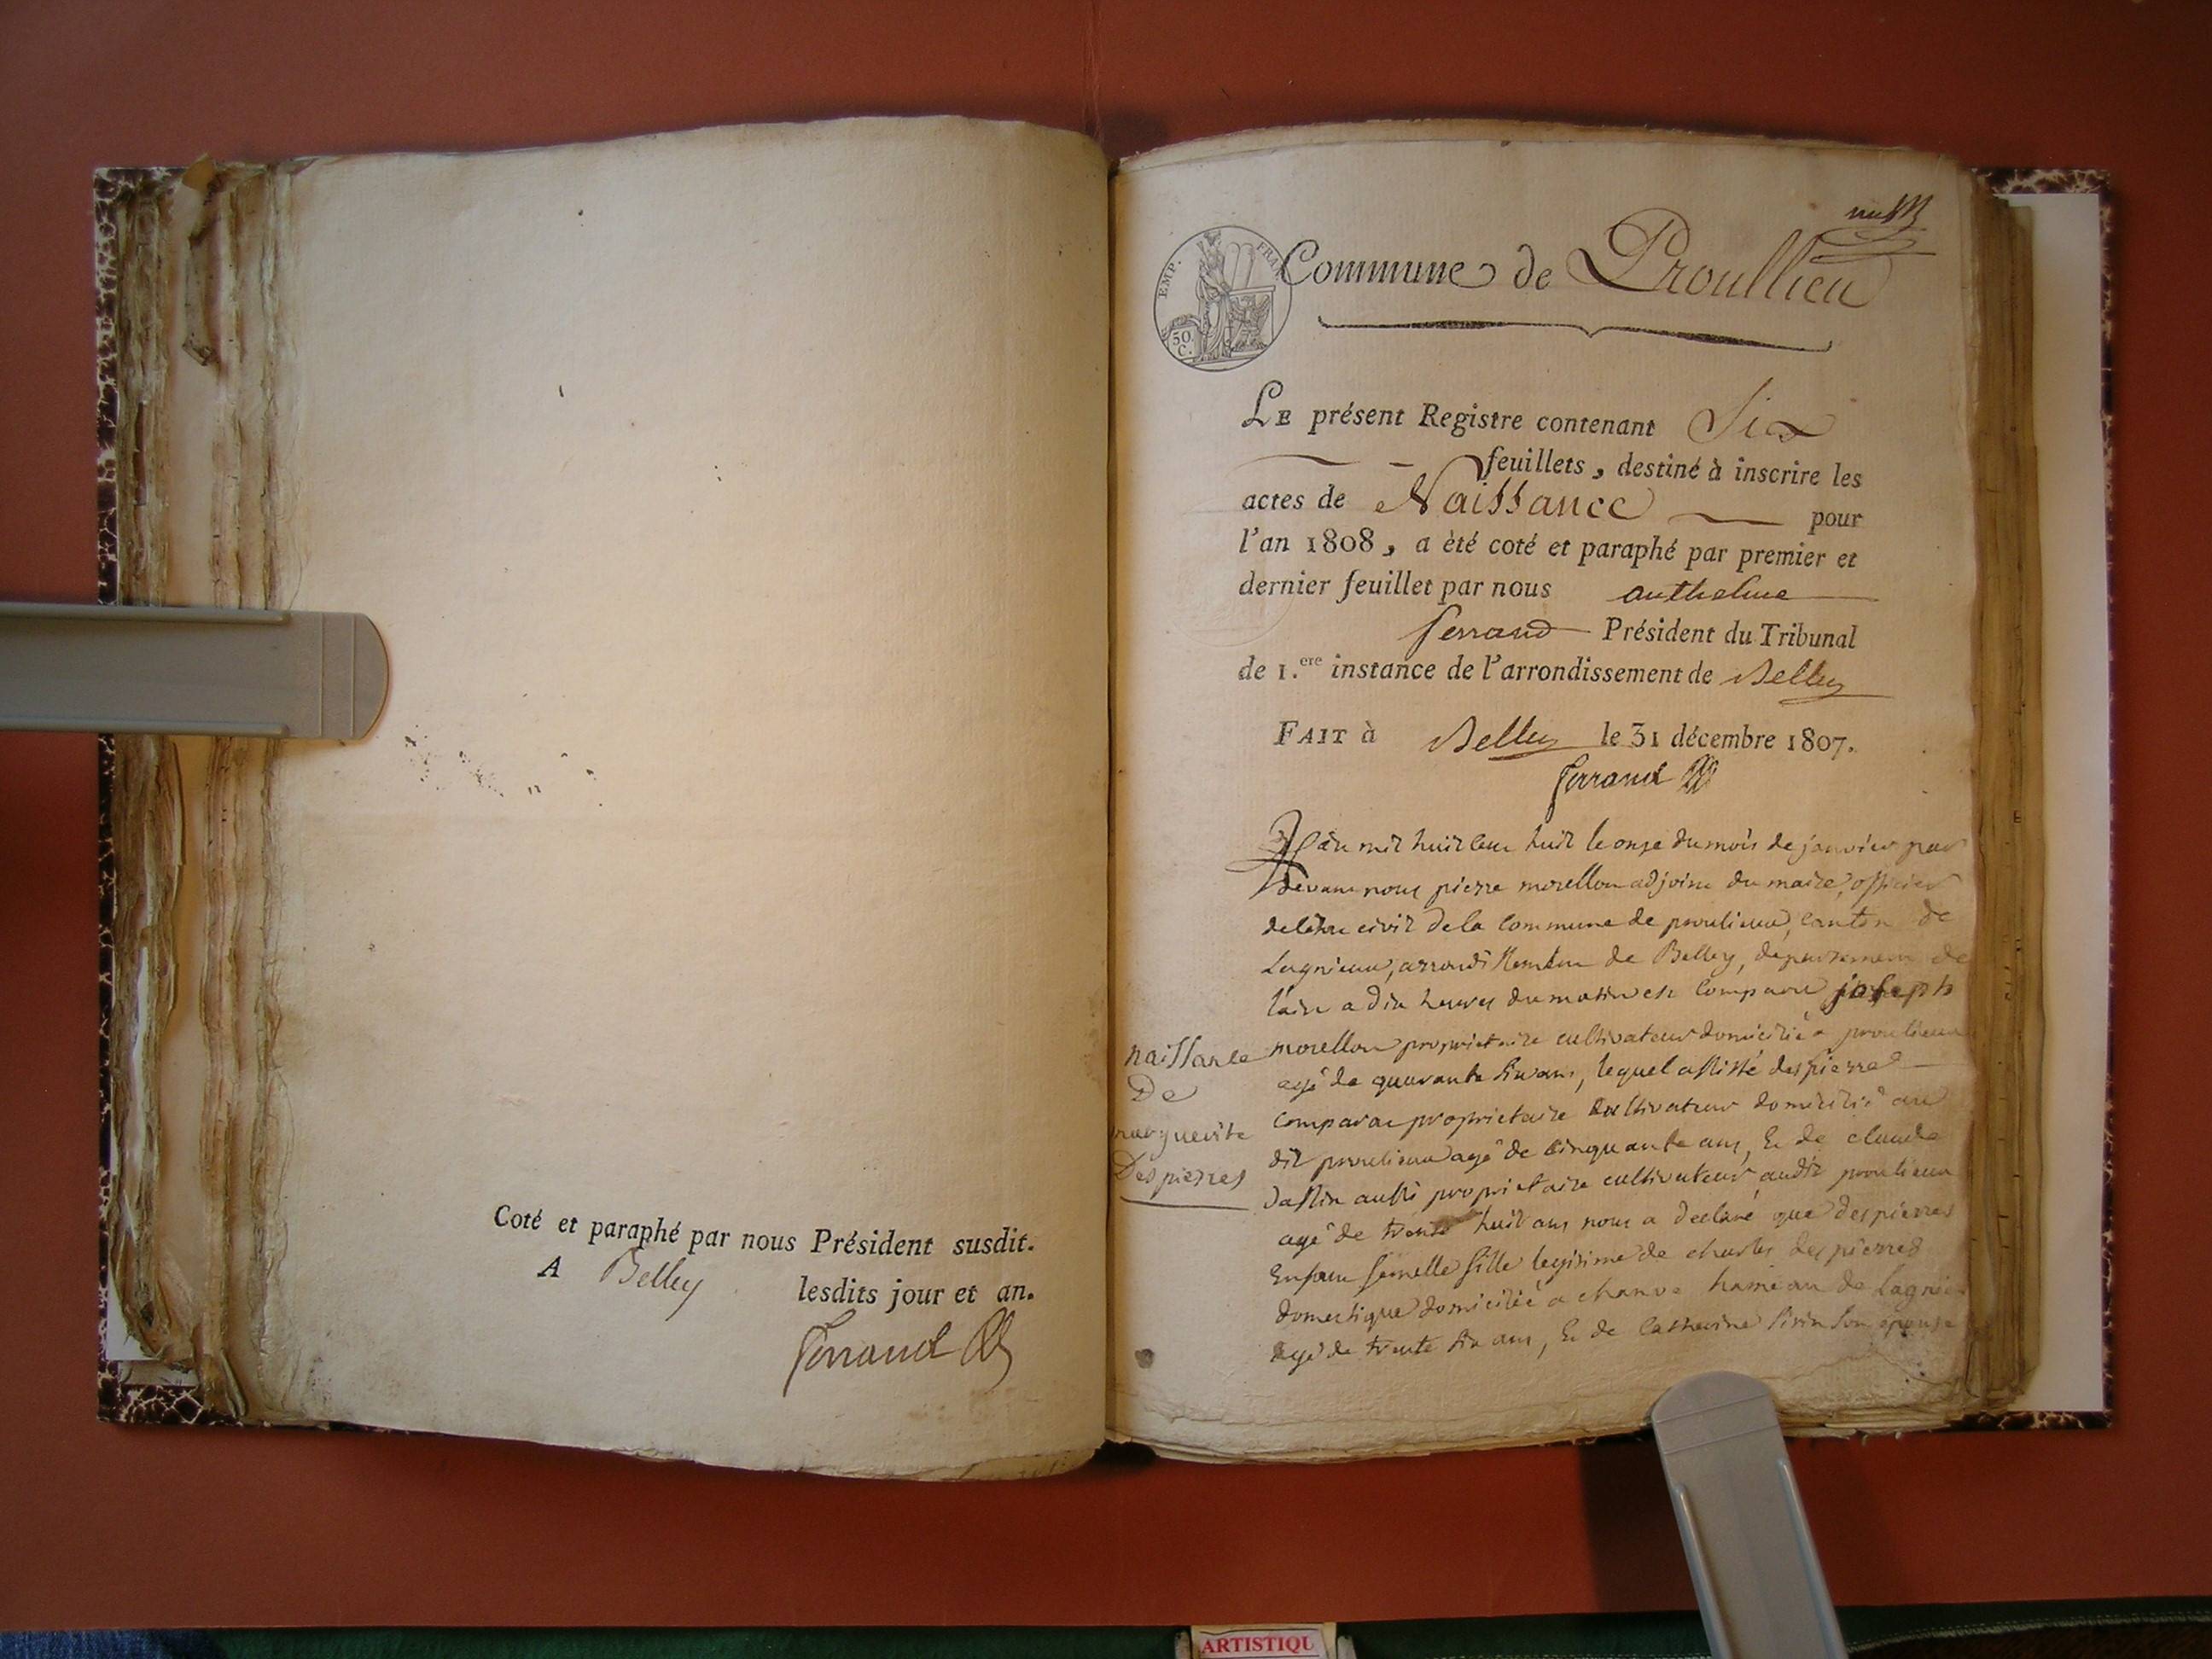 Coté et paraphé par nous Président susdit.
A Belley lesdits jour et an.
Ferrand
EMP. FRAN
50
C.
Commune de Proullieu
LE présent Registre contenant Six
feuillets, destiné à inscrire les
actes de Naissance pour
l'an 1808, a èté coté et paraphé par premier et
dernier feuillet par nous anthelme
ferrand Président du Tribunal
de 1.ere instance de l'arrondissement de Belley
FAIT à Belley le 31 décembre 1807.
Ferrand
L'an mil huit cent huit le onze du mois de janvier par
devant nous pierre morellon adjoint du maire, officier
de l'état civil de la Commune de proulieux, canton de
Lagnieux, arrondissement de Belley, departement de
l'ain a dix heures du matin est comparu joseph
morellon proprietaire cultivateur domicilié a proulieux
agé de quarante six ans, lequel assisté des pierre
comparac proprietaire cultivateur domicilié au
dit proulieux agé de cinquante ans, & de claude
aussi proprietaire cultivateur audit proulieux
agé de trente huit ans nous a declaré que despierres
Enfant femelle fille legitime de charles despierres
domestique domicilié a chanve hameau de Lagnieu
agé de trente six ans, & de Catherine son epouse
naissance
De
marguerite
Despierres
ARTISTIQU